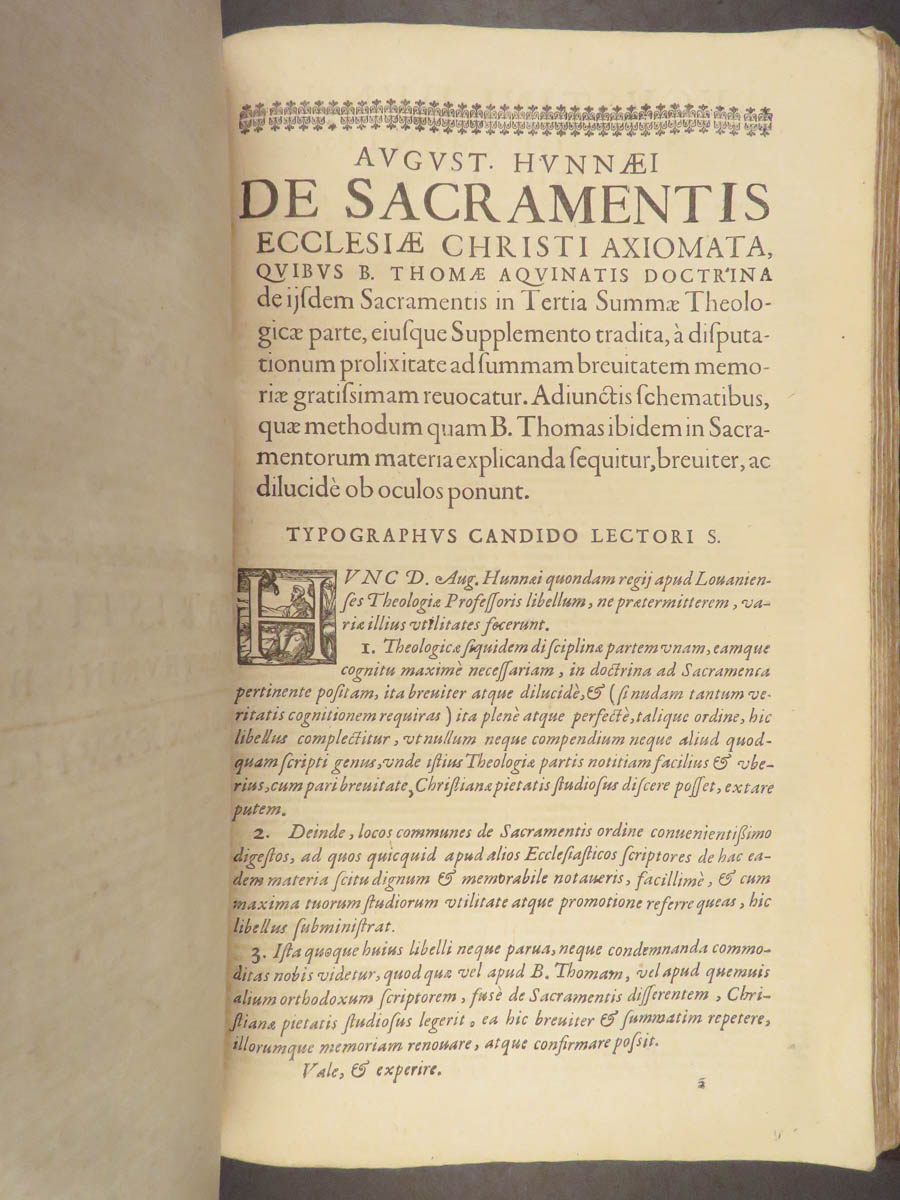 AVGVST. HVNNÆI
DE SACRAMENTIS
ECCLESIÆ CHRISTI AXIOMATA,
QVIBVS B. THOMÆ AQVINATIS DOCTRINA
de ijſdem Sacramentis in Tertia Summæ Theolo-
gicæ parte, eiuſque Supplemento tradita, à diſputa-
tionum prolixitate ad ſummam breuitatem memo-
riæ gratiſsimam reuocatur. Adiunctis ſchematibus,
quæ methodum quam B. Thomas ibidem in Sacra-
mentorum materia explicanda ſequitur, breuiter, ac
dilucidè ob oculos ponunt.
TYPOGRAPHVS CANDIDO LECTORI S.
HVNC D. Aug. Hunnæi quondam regij apud Louanien-
ſes Theologiæ Profeſſoris libellum, ne prætermitterem, va-
riæ illius vtilitates fecerunt.
1. Theologicæ ſiquidem diſciplinæ partem vnam, eamque
cognitu maximè neceſſariam, in doctrina ad Sacramenta
pertinente poſitam, ita breuiter atque dilucidè, & (ſi nudam tantum ve-
ritatis cognitionem requiras) ita plenè atque perfectè, talique ordine, hic
libellus complectitur, vt nullum neque compendium neque aliud quod-
quam ſcripti genus, vnde iſtius Theologiæ partis notitiam facilius & vbe-
rius, cum pari breuitate, Chriſtianæ pietatis ſtudioſus diſcere poſſet, extare
putem.
2. Deinde, locos communes de Sacramentis ordine conuenientiſsimo
digeſtos, ad quos quicquid apud alios Eccleſiaſticos ſcriptores de hac ea-
dem materia ſcitu dignum & memorabile notaueris, facillimè, & cum
maxima tuorum ſtudiorum vtilitate atque promotione referre queas, hic
libellus ſubminiſtrat.
3. Iſta quoque huius libelli neque parua, neque condemnanda commo-
ditas nobis videtur, quod quæ vel apud B. Thomam, vel apud quemuis
alium orthodoxum ſcriptorem, fuſè de Sacramentis differentem, Chri-
ſtianæ pietatis ſtudioſus legerit, ea hic breuiter & ſummatim repetere,
illorumque memoriam renouare, atque confirmare poſsit.
Vale, & experire.